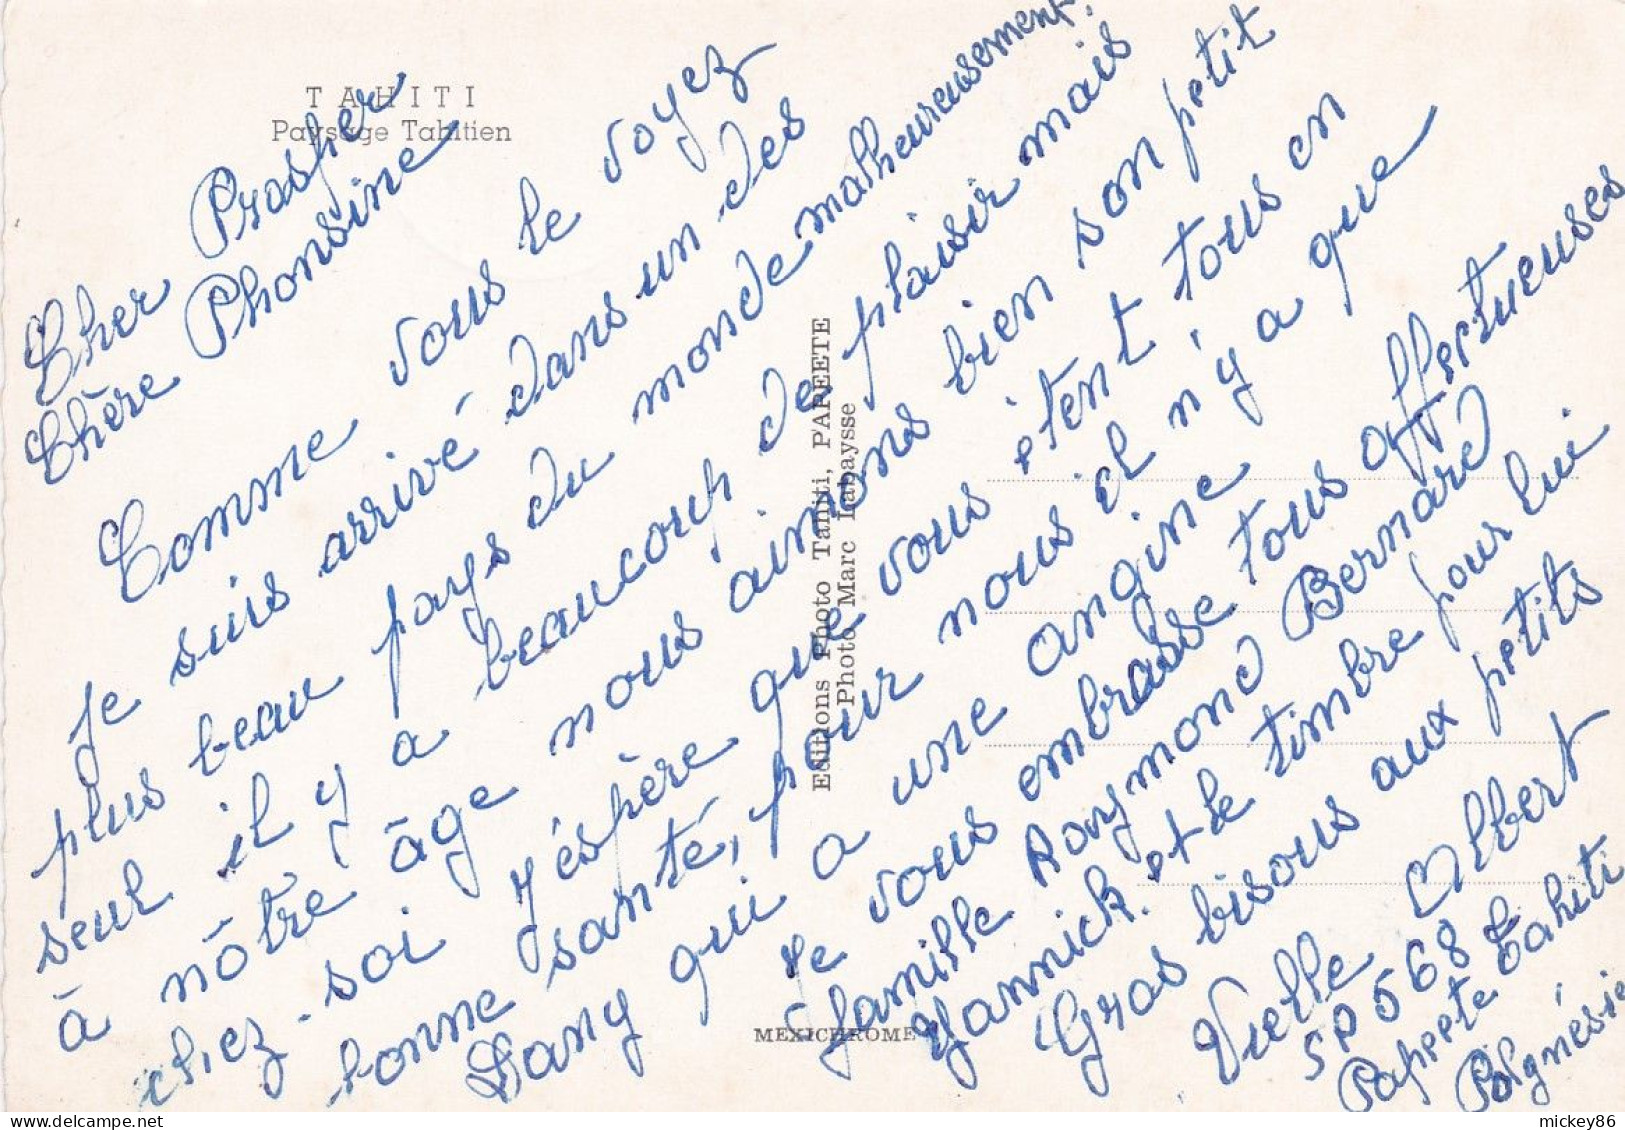 TAHITI
Paysage Tahitien
Cher Prosper
Chère Phonsine
Comme vous le voyez
je suis arrivé dans un des
plus beau pays du monde malheureusement.
seul il y a beaucoup de plaisir mais
à nôtre âge nous aimons bien son petit
chez-soi j'éspère que vous etent tous en
bonne santé, pour nous il n'y a que
Dany qui a une angine
Je vous embrasse tous affectueuses
Famille Raymond Bernard
Yannick et le timbre pour lui
Gros bisous aux petits
Vielle Albert
SP 568
Papeete Tahiti
Polynésie
Editions Photo Tahiti, PAPEETE
Photo Marc Labaysse
MEXICHROME
mickey86